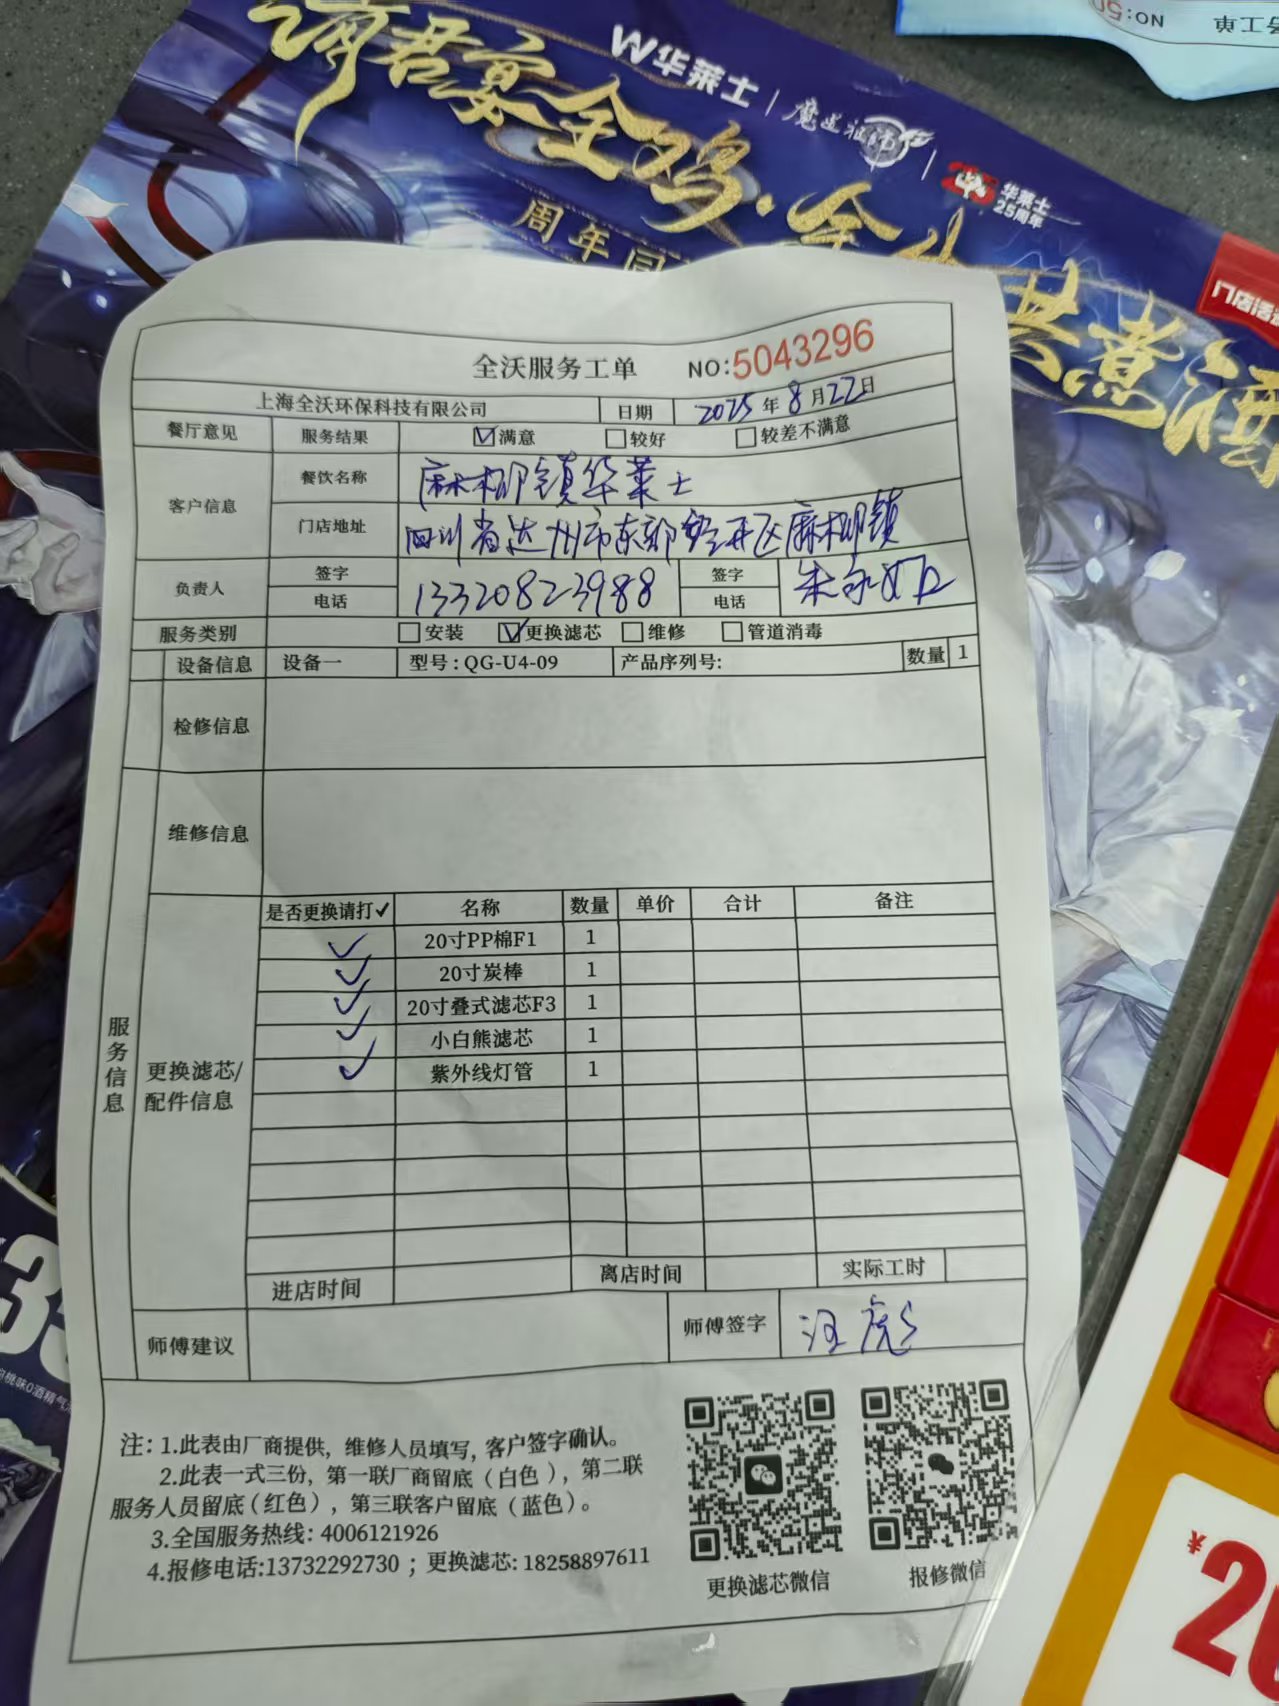 请君宴全鸡·
W华莱士
魔道祖师
华莱士
25周年
共煮酒
NO:50
工单
全沃服务工单 NO:5043296
上海全沃环保科技有限公司 日期 2025年8月22日
餐厅意见 服务结果 ☑满意 □较好 □较差不满意
客户信息 餐饮名称 麻柳镇华莱士
门店地址 四川省达州市东部经开区麻柳镇
负责人 签字 电话 13320823988 签字 电话 朱
服务类别 □安装 ☑更换滤芯 □维修 □管道消毒
设备信息 设备一 型号:QG-U4-09 产品序列号: 数量 1
检修信息
维修信息
服务信息
更换滤芯/
配件信息
是否更换请打✓ 名称 数量 单价 合计 备注
✓ 20寸PP棉F1 1
✓ 20寸炭棒 1
✓ 20寸叠式滤芯F3 1
✓ 小白熊滤芯 1
✓ 紫外线灯管 1
进店时间 离店时间 实际工时
师傅建议 师傅签字 汪彪
注: 1.此表由厂商提供, 维修人员填写, 客户签字确认。
2.此表一式三份, 第一联厂商留底(白色), 第二联
服务人员留底(红色), 第三联客户留底(蓝色)。
3.全国服务热线: 4006121926
4.报修电话:13732292730 ; 更换滤芯: 18258897611
更换滤芯微信 报修微信